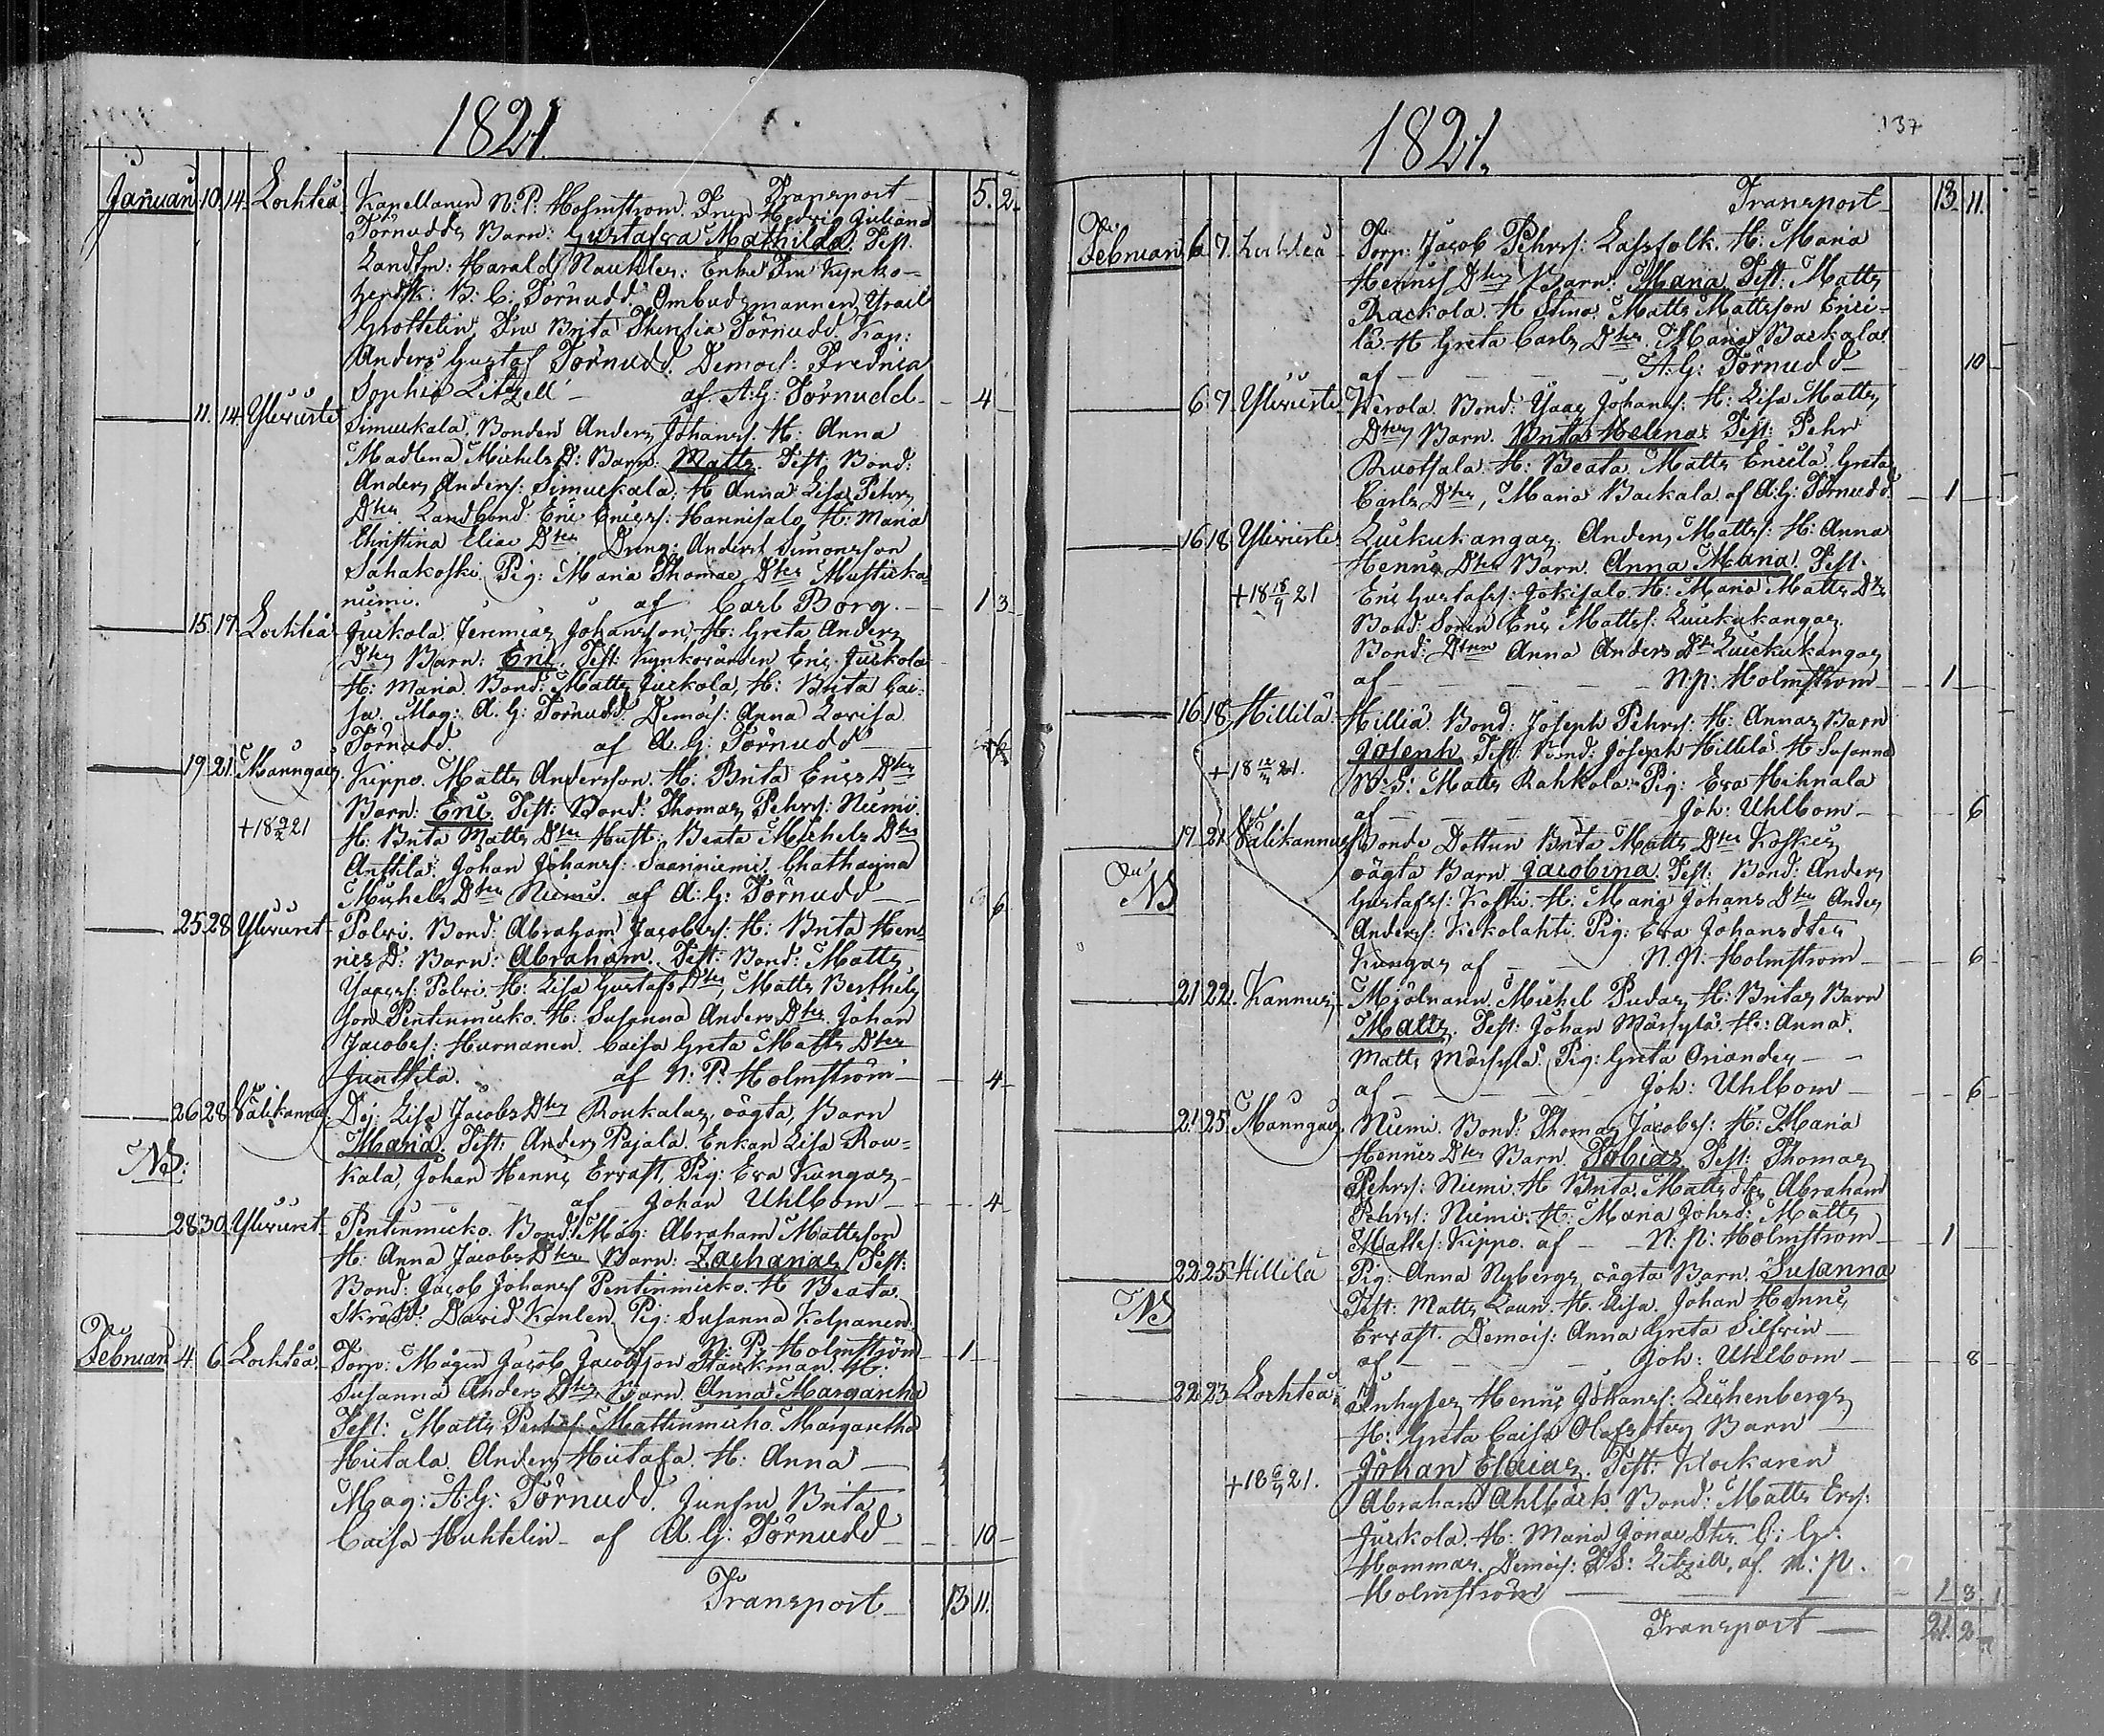 1821.
Transport 5. 2.
Januari 10. 14. Lochteå Kapellanen N. P. Holmstrom. Frun Hedvig Juliana
Törnudds Barn: Gustafva Mathilda. Test.
Landtm: Harald Naukler: Enke Fru Kyrko-
herdsk: B: C: Törnudd. Ombudsmannen
Grottelin, Fru Brita Törnudd Kap:
Anders Gustaf Törnudd. Demois: Fredrica
Sophia Litzell af A: G: Törnudd 4
11. 14. Yliviirte Simuckala. Bonden Anders Johanss. H: Anna
Madlena Michels D: Barn: Matts. Test. Bond:
Anders Anders: Simuckala. H Anna Lisa Pehrs
Dter Landbond: Eric Ericss: Hannisalo, H: Maria
Christina Eliae Dter Dreng: Anders Simonsson
Sahakoski Pig: Maria Thomae Dter Musticka
niemi. af Carl Borg. 1 3
15. 17. Lochteå Juckola Jeremias Johansson, H: Greta Anders
Dter Barn: Eric. Test: Kyrkovärden Eric Juckola
H: Maria. Bond: Matts Juckola, H: Brita Cai-
sa. Mag: A. G: Törnudd. Demois: Anna Lovisa
Törnudd. af A. G: Törnudd
19. 21. Maringais. Kippo. Matts Andersson. H: Brita Erics Dter
Barn: Eric. Test: Bond: Thomas Pehrs: Niemi.
+ 18 9/2 21 H: Brita Matts Dter Beata Michels Dter
Anttila. Johan Johanss: Saariniemi. Chatharina
Michels Dter Niemi. af A: G: Törnudd 6
25. 28. Yliviiret Polvi. Bond: Abraham Jacobss: H: Brita Hen-
rics D: Barn: Abraham. Test: Bond: Matts
Polvi. H: Lisa Gustafs Dter, Matts Berthels
son Pentinmicko. H: Susanna Anders Dter Johan
Jacobss: Hurnanen. Caisa Greta Matts Dter
Junttila. af N: P. Holmström 4
26. 28. Välikannus. Dej: Lisa Jacobs Dter Roukalas, oägta, Barn
NB: Maria. Test: Anders Pajala. Enkan Lisa Rou-
kala, Johan Henric Ervast, Pig: Eva Kungas
af Johan Uhlbom 4
28. 30. Yliviiret Pentinmicko. Bond: Måg: Abraham Mattsson
H: Anna Jacobs Dter Barn: Zacharias, Test:
Bond: Jacob Johanss Pentinmicko. H Beata.
Skrädd: David Pig: Susanna Kolpanen
af N: P. Holmström 1
Februari 4. 6. Lochteå Torp: Mågen Jacob Jacobsson Stackman. H:
Susanna Anders Dter Barn. Anna Margaretha
Test: Matts Mattinmicko. Margaretha
Hietala. Anders Hietala. H: Anna
Mag: A: G: Törnudd. Junfru Brita
Caisa Huhtelin af A. G: Törnudd 10
Transport 13 11.
1821. 137
Transport 13 11.
Februari 6. 7. Lochteå Torp: Jacob Pehrs: Lassfolk. H: Maria
Henrics Dter Barn: Maria. Test: Matts
Rackola. H Stina. Matts Mattsson Erici-
lä. H Greta Carls Dter. Maria Backala
af A: G: Törnudd 10
6. 7. Yliviirte Verola. Bond: Johanss: H: Lisa Matts
Dter Barn. Brita Helena. Test: Pehr
Ruotsala. H: Beata. Matts Ericilä. Greta
Carls Dter, Maria Backala. af A: G: Törnudd 1
16. 18. Yliviirte Luickukangas. Anders Matts: H: Anna
Henrics Dter Barn. Anna Maria. Test.
+ 18 18/9 21 Eric Gustafs: Jokisalo. H: Maria Matts Dtr
Bond: Sonen Eric Matts: Luickukangas.
Bond: Dttrn Anna Anders Dtr Luickukangas
af N. P: Holmström 1
16. 18. Hillilä Hilliä Bond: Joseph Pehrs: H: Annas Barn
Joseph Test: Bond: Joseph Hillilä. H Susanna
+ 18 21. Matts Rahkola. Pig: Eva Hihnala
af Joh: Uhlbom 6
19. 21. Välikannus Bonde Dottern Brita Matts Dter Koskis
NB oägta Barn Jacobina. Test: Bond: Anders
Gustafs: Koski. H: Maria Johans Dter Anders
Anders: Kekolahti. Pig: Eva Johansdter
Kungas af N. P. Holmström 6
21. 22. Kannus Mjölnarn. Michel Pudas, H: Britas Barn
Matts. Test: Johan Märsylä. H: Anna.
Matts Märsylä. Pig: Greta Oriander
af Joh: Uhlbom 6
21. 25. Maringais. Niemi. Bond: Thomas Jacobss: H: Maria
Henrics Dter Barn. Tobias. Test: Thomas
Pehrs: Niemi. H Brita. Matts dter Abraham
Pehrs: Niemi. H: Maria Matts
Matts: Kippo. af N: P: Holmström 1
22. 25. Hillilä Pig: Anna Nybergs, oägta Barn. Susanna
NB Test: Matts Laun. H. Lisa. Johan Henric
Ervast. Demois: Anna Greta Silfvin
af Joh: Uhlbom 8
22. 23. Lochteå Inhyses Henric Johanss: Lichenbergs
H: Greta Caisa Olafs dter Barn
+ 18 6/9 21. Johan Elaias. Test: Klockaren
Abraham Ahlbäck. Bond: Matts Ers:
Juckola. H: Maria Jonae Dter C: G:
Hammar. Demois: F S: Litzell, af N: P.
Holmström 1 3 1
Transport 21. 2